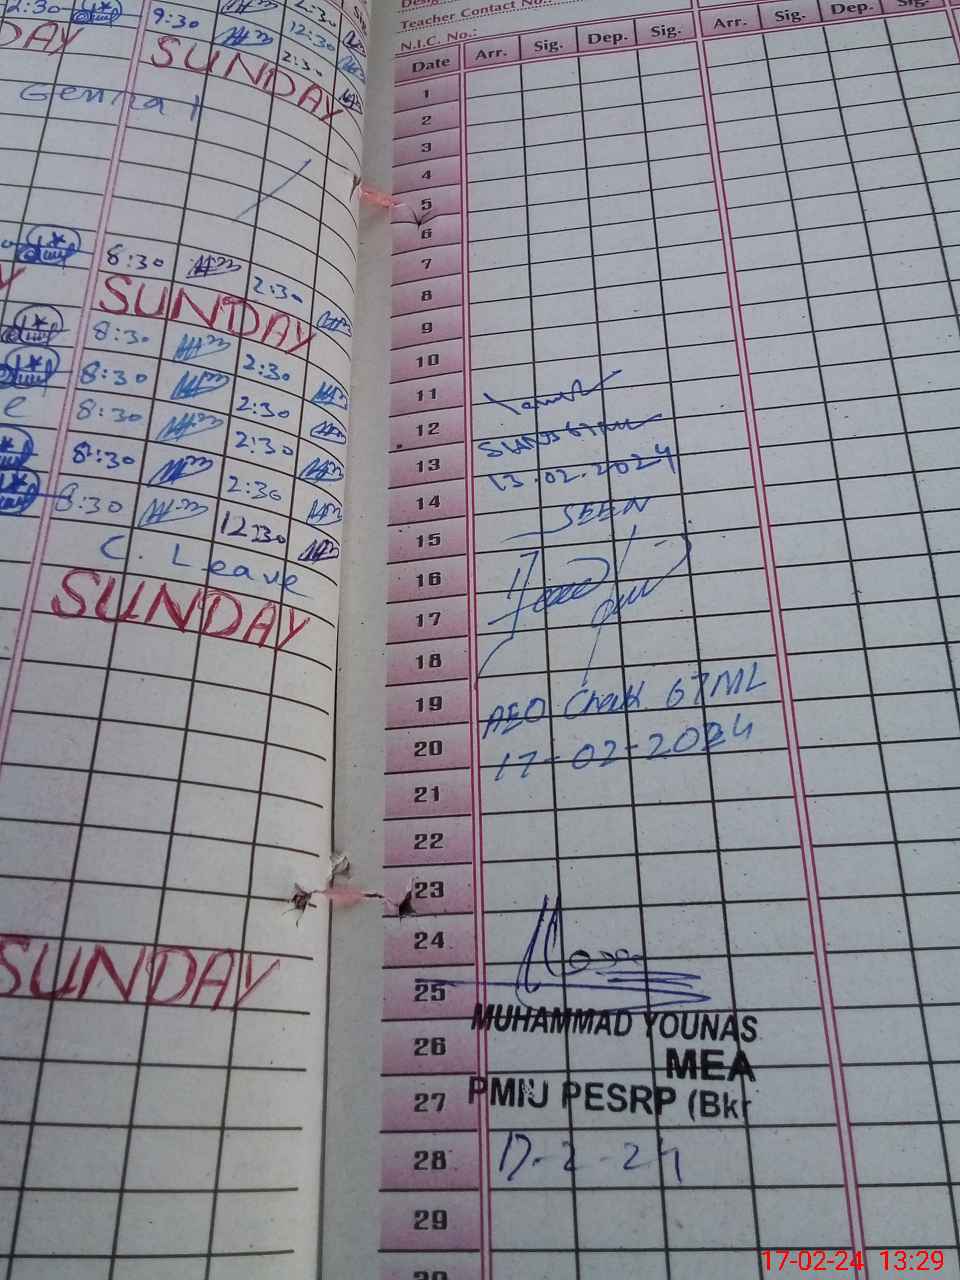 2:30 9:30 2:30
12:30
2:30
DAY SUNDAY
Genral
8:30 2:30
SUNDAY
8:30 2:30
8:30 2:30
8:30 2:30
8:30 2:30
8:30 12:30
C. Leave
SUNDAY
SUNDAY
Teacher Contact No.:
N.I.C. No.:
Date Arr. Sig. Dep. Sig. Arr. Sig. Dep. Sig.
1
2
3
4
5
6
7
8
9
10
11
12
13
13.02.2024
14
SEEN
15
16
17
18
19
AEO Chak 67ML
20
17-02-2024
21
22
23
24
25
MUHAMMAD YOUNAS
26
MEA
27
PMIU PESRP (Bkr
28
17-2-24
29
30
17-02-24 13:29